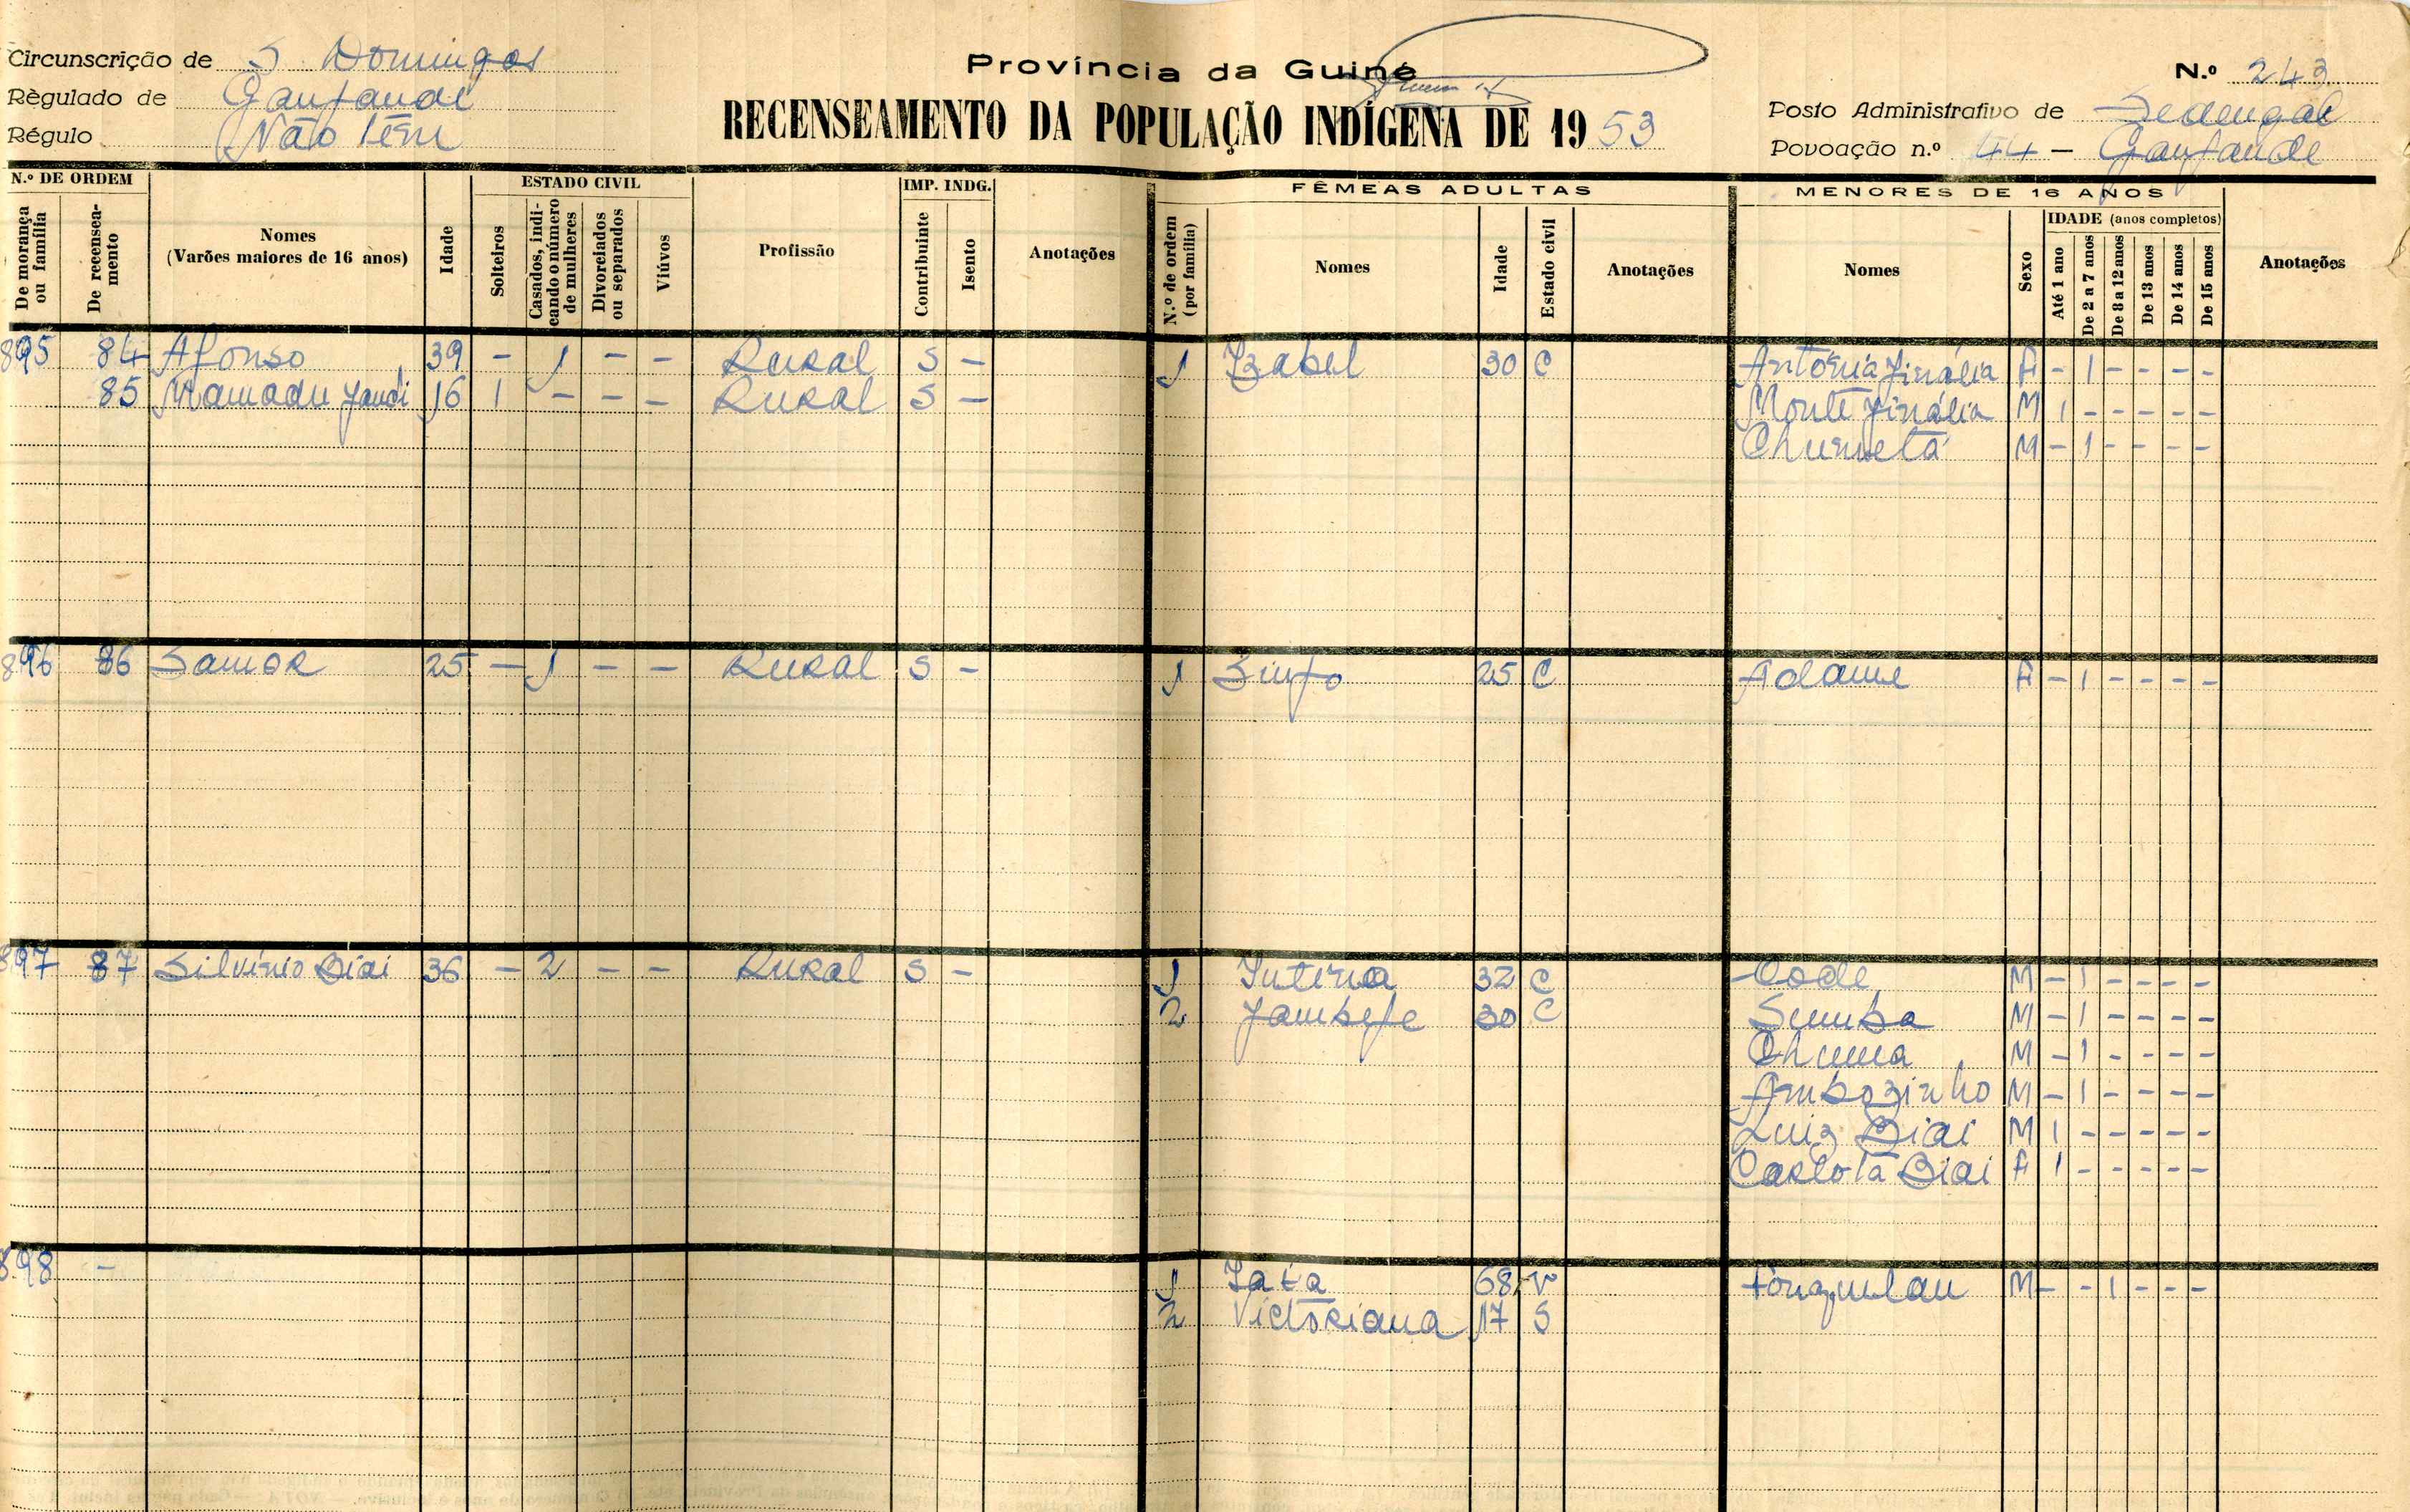 Circunscrição de S. Domingos
Règulado de Ganfande
Régulo Não tem
Província da Guiné
RECENSEAMENTO DA POPULAÇÃO INDÍGENA DE 1953
N.º 243
Posto Administrativo de Sedengal
Povoação n.º 44 - Ganfande
N.º DE ORDEM
ESTADO CIVIL
IMP. INDG.
FÊMEAS ADULTAS
MENORES DE 16 ANOS
De morança ou família
De recenseamento
Nomes
(Varões maiores de 16 anos)
Idade
Solteiros
Casados, indicando o número de mulheres
Divorciados ou separados
Viúvos
Profissão
Contribuinte
Isento
Anotações
N.º de ordem (por família)
Nomes
Idade
Estado civil
Anotações
Nomes
Sexo
IDADE (anos completos)
Até 1 ano
De 2 a 7 anos
De 8 a 12 anos
De 13 anos
De 14 anos
De 15 anos
Anotações
895 84 Afonso 39 - 1 - - Rural S - 1 Izabel 30 C Antónia Finália F - 1 - - - -
85 Mamadu Jandi 16 1 - - - Rural S - Monte Finália M 1 - - - - -
Churneta M - 1 - - - -
896 86 Samor 25 - 1 - - Rural S - 1 25 C Adame F - 1 - - - -
897 87 Silvinio Biai 36 - 2 - - Rural S - 1 Interna 32 C Code M - 1 - - - -
2 30 C Sumba M - 1 - - - -
Chuma M - 1 - - - -
Ambozinho M - 1 - - - -
Luiz Biai M 1 - - - - -
Carlota Biai F 1 - - - - -
898 - 1 Jata 68 V M - - 1 - - -
2 Victoriana 17 S